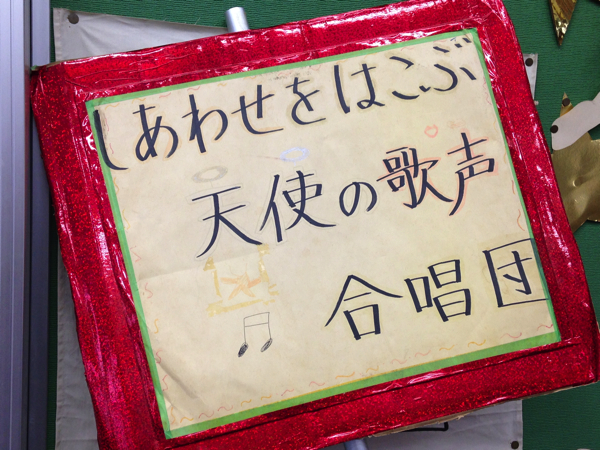 しあわせをはこぶ
天使の歌声
合唱団